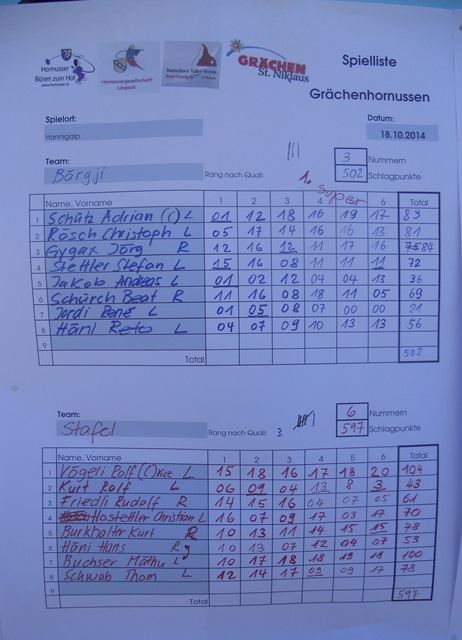 Hornusser
Büren zum Hof
www.hornusser.ch
Hornussergesellschaft
Limpach
Matterhorn Valley Hotels
GRÄCHEN
ST. NIKLAUS
Spielliste
Grächenhornussen
Spielort:
Hannigalp
Datum:
18.10.2014
Team:
Börgji
Rang nach Quali:
1. super
3 Nummern
502 Schlagpunkte
Name, Vorname 1 2 3 4 5 6 Total
1 Schütz Adrian (C) L 01 12 18 16 19 17 83
2 Rösch Christoph L 05 17 14 16 16 13 81
3 Gygax Jörg R 12 16 12 11 17 16 84
4 Stettler Stefan L 15 16 08 11 11 11 72
5 Jakob Andreas L 01 02 12 04 04 13 36
6 Schürch Beat R 11 16 08 18 11 05 69
7 Jordi René L 01 05 08 07 00 00 21
8 Häni Reto L 04 07 09 10 13 13 56
9
Total 502
Team:
Stafel
Rang nach Quali: 3.
6 Nummern
597 Schlagpunkte
Name, Vorname 1 2 3 4 5 6 Total
1 Vögeli Rolf (C) L 15 18 16 17 18 20 104
2 Kurt Rolf L 06 09 04 13 8 3 43
3 Friedli Rudolf R 14 15 16 04 07 05 61
4 Hostettler Christian L 16 07 09 17 03 17 70
5 Burkhalter Kurt R 10 13 11 14 15 15 78
6 Häni Hans R 10 13 07 12 04 07 53
7 Buchser Mäthu L 10 17 18 18 19 18 100
8 Schwab Thom L 12 14 17 09 09 17 78
9
Total 597